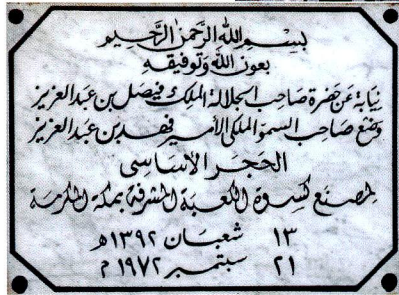 بسم الله الرحمن الرحيم
بعون الله وتوفيقه
نيابة عن حضرة صاحب الجلالة الملك فيصل بن عبد العزيز
وضع صاحب السمو الملكي الأمير فهد بن عبد العزيز
الحجر الأساسي
لمصنع كسوة الكعبة المشرفة بمكة المكرمة
١٣ شعبان ١٣٩٢ هـ
٢١ سبتمبر ١٩٧٢ م